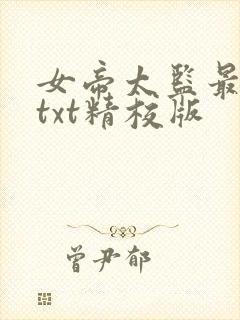 女帝太监最
txt精校版
曾尹郁